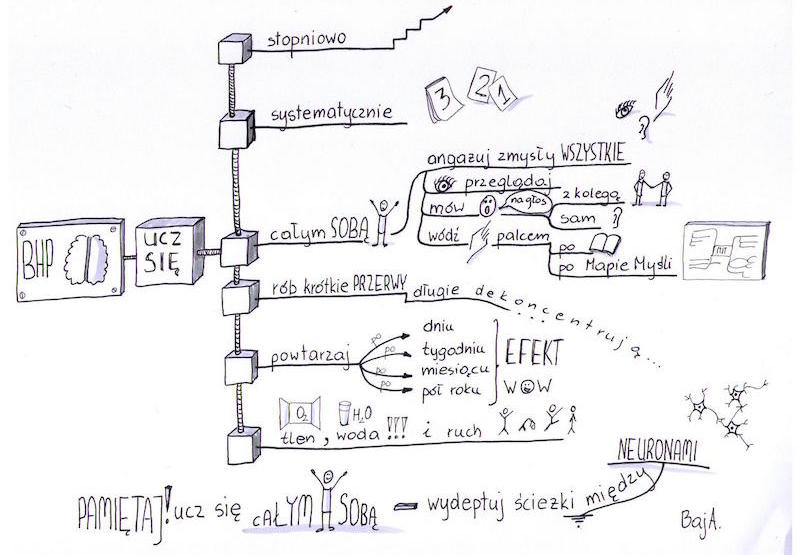 stopniowo
systematycznie
3 2 1
angazuj zmysły WSZYSTKIE
przeglądaj
mów na głos z kolegą
sam
całym SOBĄ
wódź palcem po
po Mapie Myśli
BHP
UCZ
SIĘ
rób krótkie PRZERWY długie dekoncentrują...
powtarzaj
po dniu
po tygodniu
po miesiącu
po pół roku
EFEKT
WOW
O2 H2O
tlen, woda !!! i ruch
NEURONAMI
PAMIĘTAJ! ucz się CAŁYM SOBĄ - wydeptuj ścieżki między
BajA.